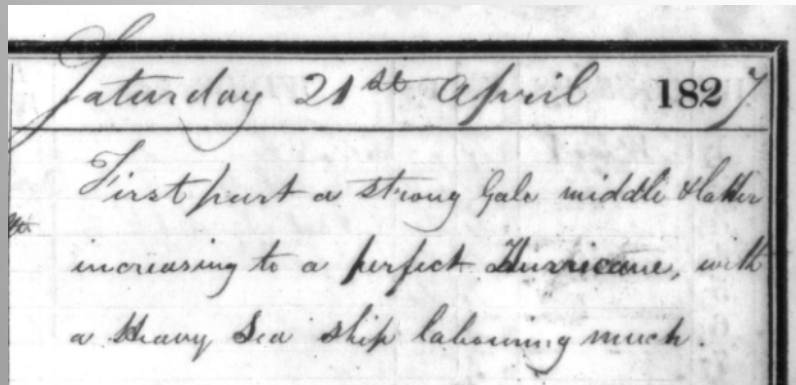 Saturday 21st April 1827
First part a strong Gale middle & latter
increasing to a perfect Hurricane, with
a Heavy Sea ship labouring much.